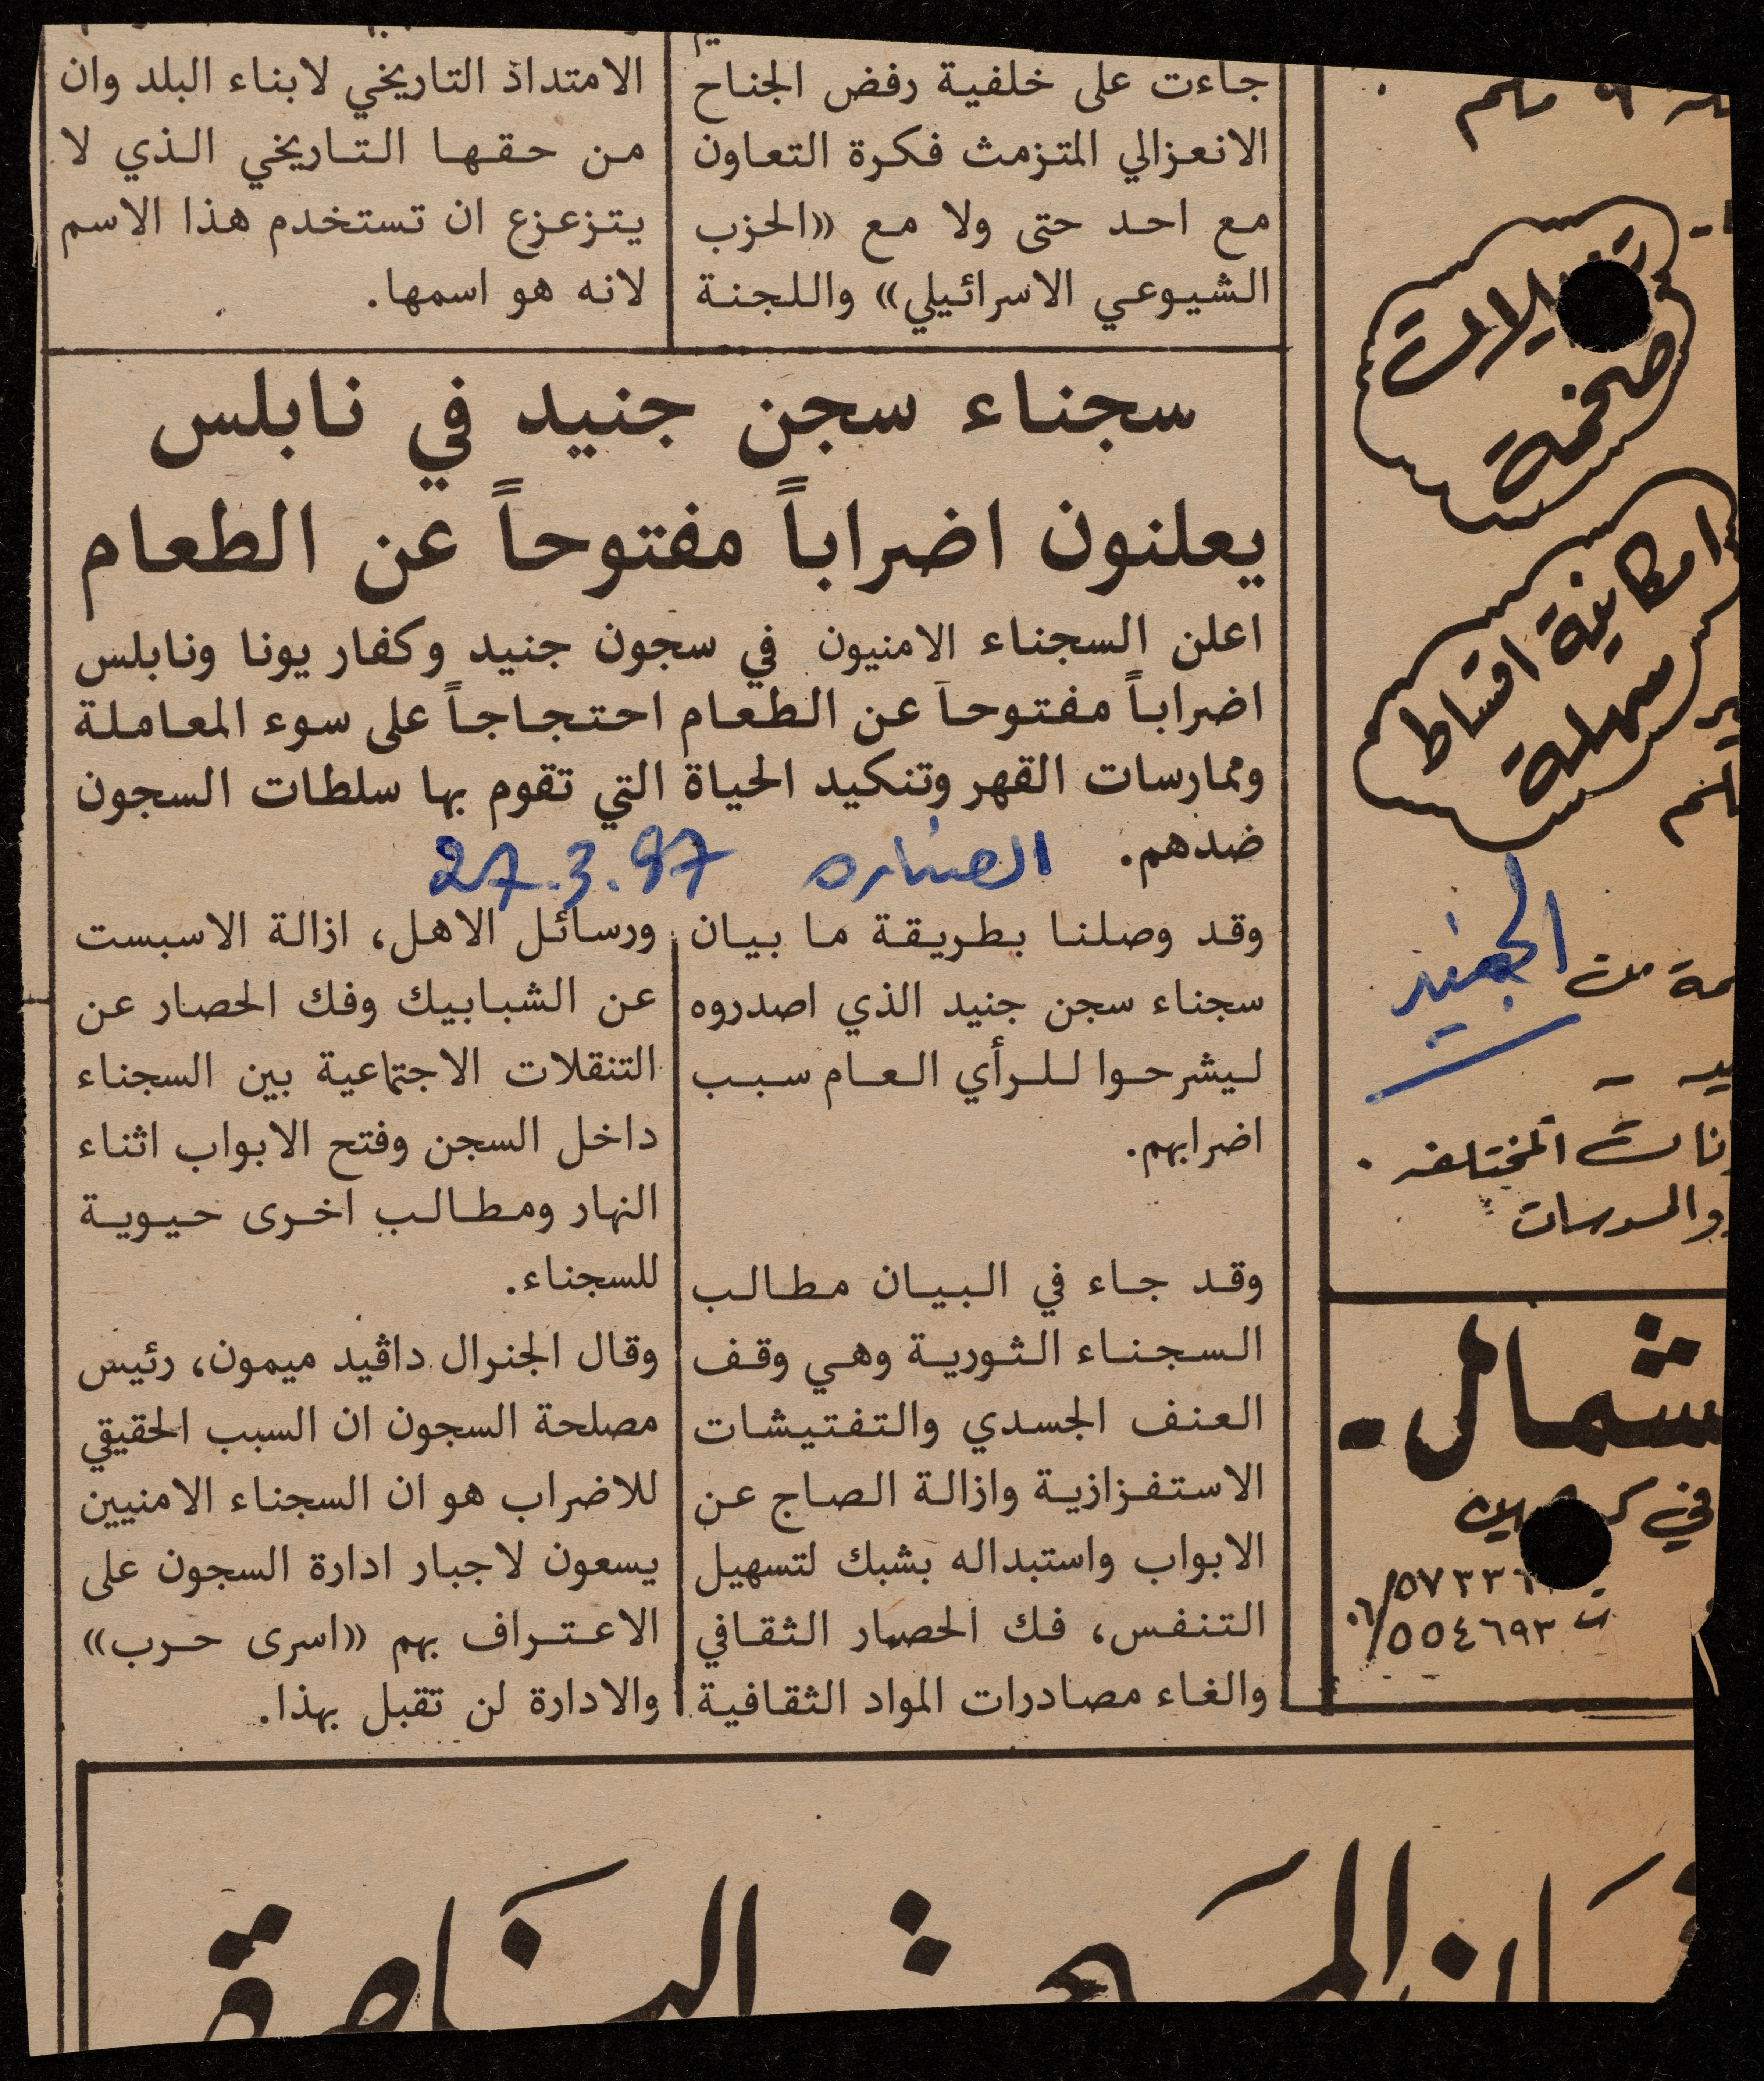 جاءت على خلفية رفض الجناح
الانعزالي المتزمث فكرة التعاون
مع احد حتى ولا مع «الحزب
الشيوعي الاسرائيلي» واللجنة
الامتداد التاريخي لابناء البلد وان
من حقها التاريخي الذي لا
يتزعزع ان تستخدم هذا الاسم
لانه هو اسمها.
سجناء سجن جنيد في نابلس
يعلنون اضراباً مفتوحاً عن الطعام
اعلن السجناء الامنيون في سجون جنيد وكفار يونا ونابلس
اضراباً مفتوحاً عن الطعام احتجاجاً على سوء المعاملة
وممارسات القهر وتنكيد الحياة التي تقوم بها سلطات السجون
ضدهم.
الصناره 27.3.87
وقد وصلنا بطريقة ما بيان
سجناء سجن جنيد الذي اصدروه
ليشرحوا للرأي العام سبب
اضرابهم.
وقد جاء في البيان مطالب
السجناء الثورية وهي وقف
العنف الجسدي والتفتيشات
الاستفزازية وازالة الصاج عن
الابواب واستبداله بشبك لتسهيل
التنفس، فك الحصار الثقافي
والغاء مصادرات المواد الثقافية
ورسائل الاهل، ازالة الاسبست
عن الشبابيك وفك الحصار عن
التنقلات الاجتماعية بين السجناء
داخل السجن وفتح الابواب اثناء
النهار ومطالب اخرى حيوية
للسجناء.
وقال الجنرال داڤيد ميمون، رئيس
مصلحة السجون ان السبب الحقيقي
للاضراب هو ان السجناء الامنيين
يسعون لاجبار ادارة السجون على
الاعتراف بهم «اسرى حرب»
والادارة لن تقبل بهذا.
ضخمة
امكانية اقساط
سهلة
الجنيد
المختلفه .
شمال -
في
ت ٥٥٤٦٩٣/٠٦